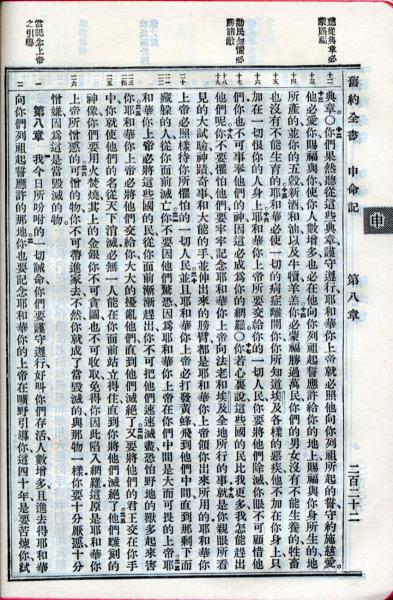 舊約全書 申命記 第八章 二百二十二
申
聽從典章必
蒙賜福
勸民勿懼必
勝諸敵
當記念上帝
之引導
典章。○你們果然聽從這些典章謹守遵行耶和華你上帝就必照他向你列祖所起的誓守約施慈愛。
他必愛你賜福與你使你人數增多也必在他向你列祖起誓應許給你的地上賜福與你身所生的地
所產的並你的五穀新酒和油以及牛犢羊羔你必蒙福勝過萬民你們的男女沒有不能生養的牲畜
也沒有不能生育的耶和華必使一切的病症離開你你所知道埃及各樣的惡疾他不加在你身上只
加在一切恨你的人身上耶和華你上帝所要交給你的一切人民你要將他們除滅你眼不可顧惜他
們你也不可事奉他們的神因這必成為你的網羅○你若心裏說這些國的民比我更多我怎能趕出
他們呢你不要懼怕他們要牢牢記念耶和華你上帝向法老和埃及全地所行的事就是你親眼所看
見的大試驗神蹟奇事和大能的手並伸出來的膀臂都是耶和華你上帝領你出來所用的耶和華你
上帝必照樣待你所懼怕的一切人民並且耶和華你上帝必打發黃蜂飛到他們中間直到那剩下而
藏躲的人從你面前滅亡你不要因他們驚恐因為耶和華你上帝在你們中間是大而可畏的上帝耶
和華你上帝必將這些國的民從你面前漸漸趕出你不可把他們速速滅盡恐怕野地的獸多起來害
你耶和華你上帝必將他們交給你大大的擾亂他們直到他們滅絕了又要將他們的君王交在你手
中你就使他們的名從天下消滅必無一人能在你面前站立得住直到你將他們滅絕了他們雕刻的
神像你們要用火焚燒其上的金銀你不可貪圖也不可收取免得你因此陷入網羅這原是耶和華你
上帝所憎惡的可憎的物你不可帶進家去不然你就成了當毀滅的與那物一樣你要十分厭惡十分
憎嫌因為這是當毀滅的物。
第八章 我今日所吩咐的一切誡命你們要謹守遵行好叫你們存活人數增多且進去得耶和華
向你們列祖起誓應許的那地你也要記念耶和華你的上帝在曠野引導你這四十年是要苦煉你試